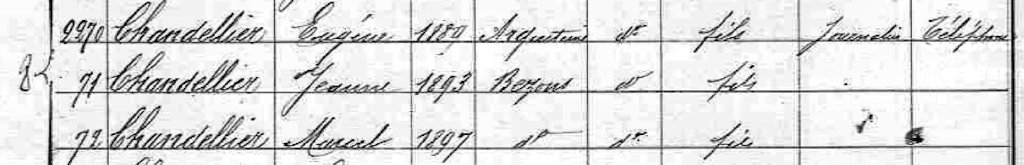 2270 Chandellier Eugène 1889 d° fils Journalier Téléphone
71 Chandellier Jeanne 1893 Bezons d° fils
72 Chandellier Marcel 1897 d° d° fils